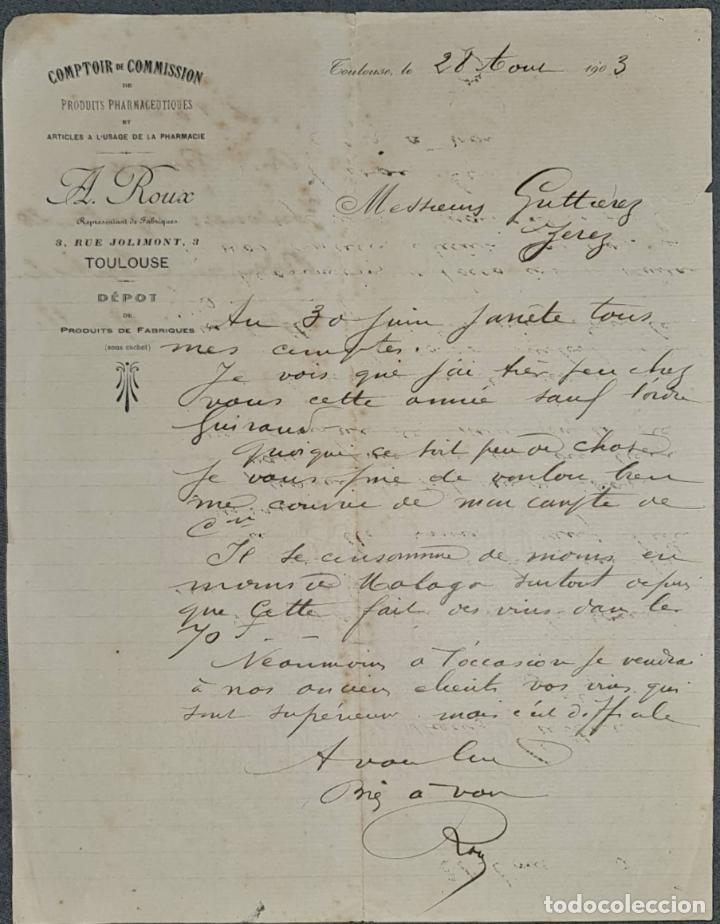 COMPTOIR DE COMMISSION
DE
PRODUITS PHARMACEUTIQUES
ET
ARTICLES A L'USAGE DE LA PHARMACIE
A. Roux
Représentant de Fabriques
3, RUE JOLIMONT, 3
TOULOUSE
DÉPOT
DE
PRODUITS DE FABRIQUES
(sous cachet)
Toulouse, le 28 Aout 1903
Messieurs Guttierez
Jerez
Au 30 Juin J'arrête tous
mes comptes.
Je vois que j'ai très peu chez
vous cette année sauf l'ordre
Guiraud
Quoique ce soit peu de chose
je vous prie de vouloir bien
me couvrir de mon compte de
Con
Il se consomme de moins en
moins de Malaga surtout depuis
que Cette fait des vins dans les
70 f
Néanmoins à l'occasion je vendrai
à nos anciens clients vos vins qui
sont supérieur mais c'est difficile
A vous lire
Bien à vous
Roux
todocoleccion